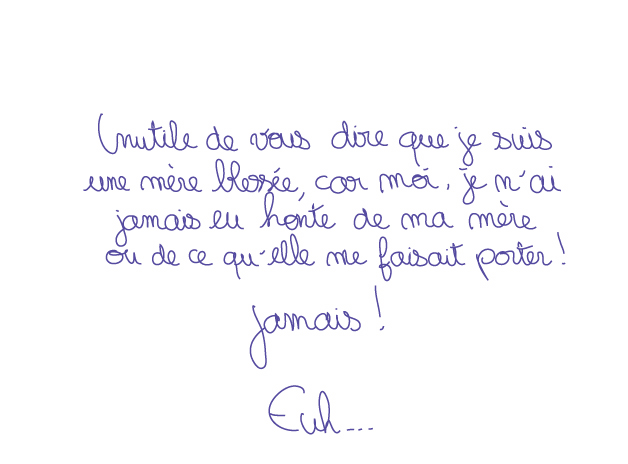 Inutile de vous dire que je suis
une mère blessée, car moi, je n'ai
jamais eu honte de ma mère
ou de ce qu'elle me faisait porter !
jamais !
Euh...